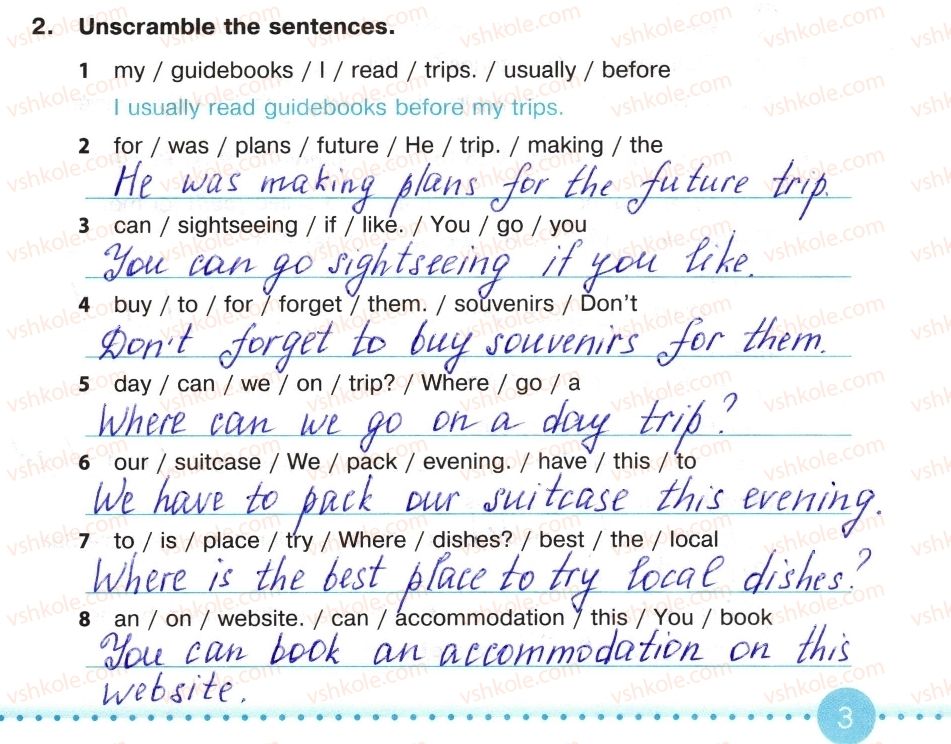 2. Unscramble the sentences.
1 my / guidebooks / I / read / trips. / usually / before
I usually read guidebooks before my trips.
2 for / was / plans / future / He / trip. / making / the
He was making plans for the future trip.
3 can / sightseeing / if / like. / You / go / you
You can go sightseeing if you like.
4 buy / to / for / forget / them. / souvenirs / Don't
Don't forget to buy souvenirs for them.
5 day / can / we / on / trip? / Where / go / a
Where can we go on a day trip?
6 our / suitcase / We / pack / evening. / have / this / to
We have to pack our suitcase this evening.
7 to / is / place / try / Where / dishes? / best / the / local
Where is the best place to try local dishes?
8 an / on / website. / can / accommodation / this / You / book
You can book an accommodation on this
website.
3
vshkole.com